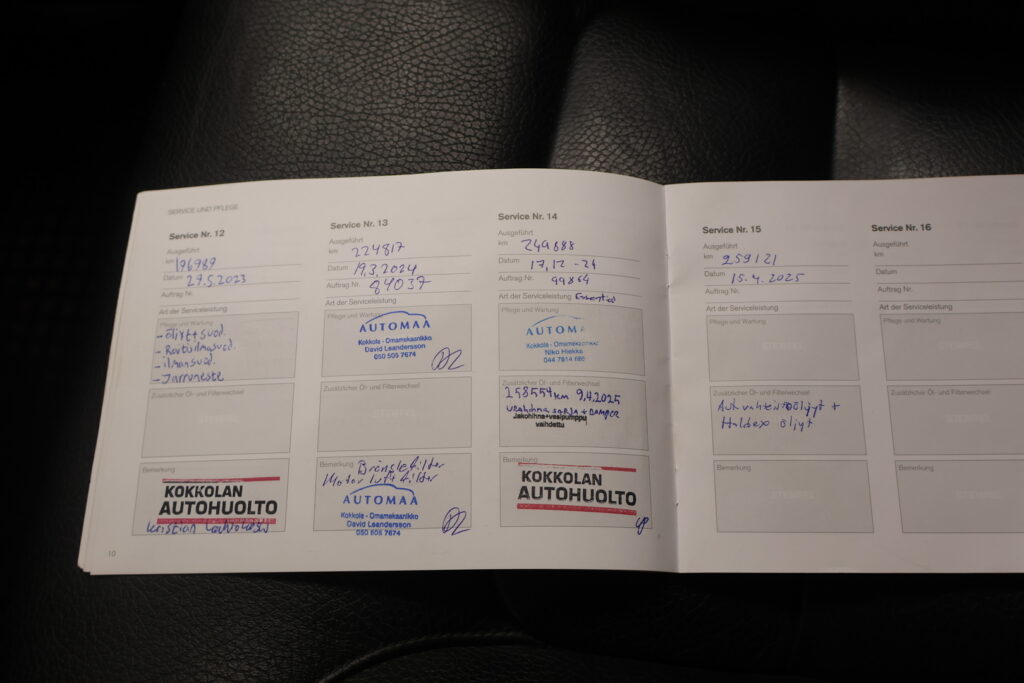 SERVICE UND PFLEGE
Service Nr. 12
Ausgeführt
km 196989
Datum 29.5.2023
Auftrag Nr.
Art der Serviceleistung
Pflege und Wartung
- Öljyt+suod.
- Raitisilmasuod.
- ilmansuod.
- Jarruneste
Zusätzlicher Öl- und Filterwechsel
STEMPEL
Bemerkung
KOKKOLAN
AUTOHUOLTO
Kristian
10
Service Nr. 13
Ausgeführt
km 224817
Datum 19.3.2024
Auftrag Nr. 84037
Art der Serviceleistung
Pflege und Wartung
AUTOMAA
Kokkola - Omamekaanikko
David Leandersson
050 505 7674
Zusätzlicher Öl- und Filterwechsel
STEMPEL
Bemerkung Bränslefilter
Motor luft filter
AUTOMAA
Kokkola - Omamekaanikko
David Leandersson
050 505 7674
Service Nr. 14
Ausgeführt
km 249688
Datum 17,12 -24
Auftrag Nr. 99864
Art der Serviceleistung Essential
Pflege und Wartung
AUTOMA
Kokkola - Omamekaanikko
Niko Hiekka
044 7814 686
Zusätzlicher Öl- und Filterwechsel
258554km 9.4.2025
urahihna sarja + DAMPER
Jakohihna+vesipumppu
vaihdettu
Bemerkung
KOKKOLAN
AUTOHUOLTO
Service Nr. 15
Ausgeführt
km 259121
Datum 15.4.2025
Auftrag Nr.
Art der Serviceleistung
Pflege und Wartung
STEMPEL
Zusätzlicher Öl- und Filterwechsel
Aut.vaihteistoöljyt +
Haldex öljyt
Bemerkung
STEMPEL
Service Nr. 16
Ausgeführt
km
Datum
Auftrag Nr.
Art der Serviceleistung
Pflege und Wartung
STEMPEL
Zusätzlicher Öl- und Filterwechsel
STEMPEL
Bemerkung
STEMPEL